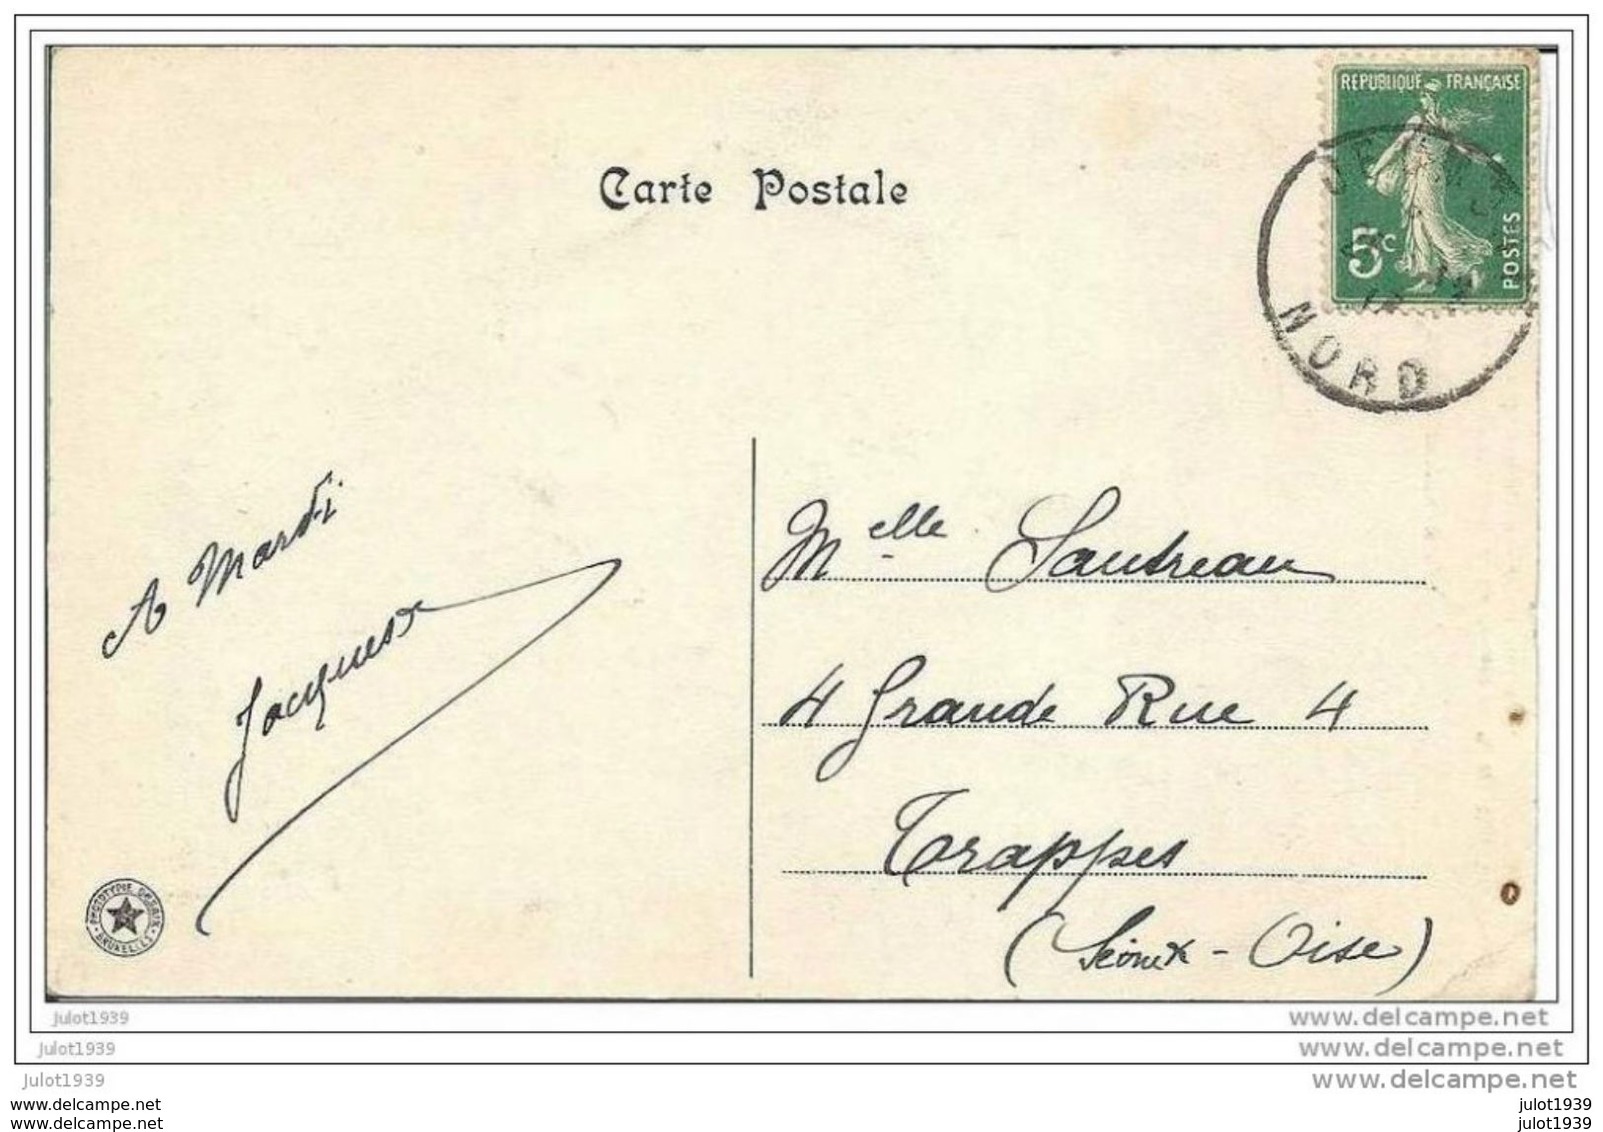 REPUBLIQUE FRANÇAISE
5c
POSTES
NORD
Carte Postale
A Mardi
Jacques
Melle Sautreau
4 Grande Rue 4
Trappes
(Seine & - Oise)
PHOTOTYPIE
BRUXELLES
julot1939
www.delcampe.net
julot1939
www.delcampe.net
julot1939
www.delcampe.net
www.delcampe.net
julot1939
www.delcampe.net
julot1939